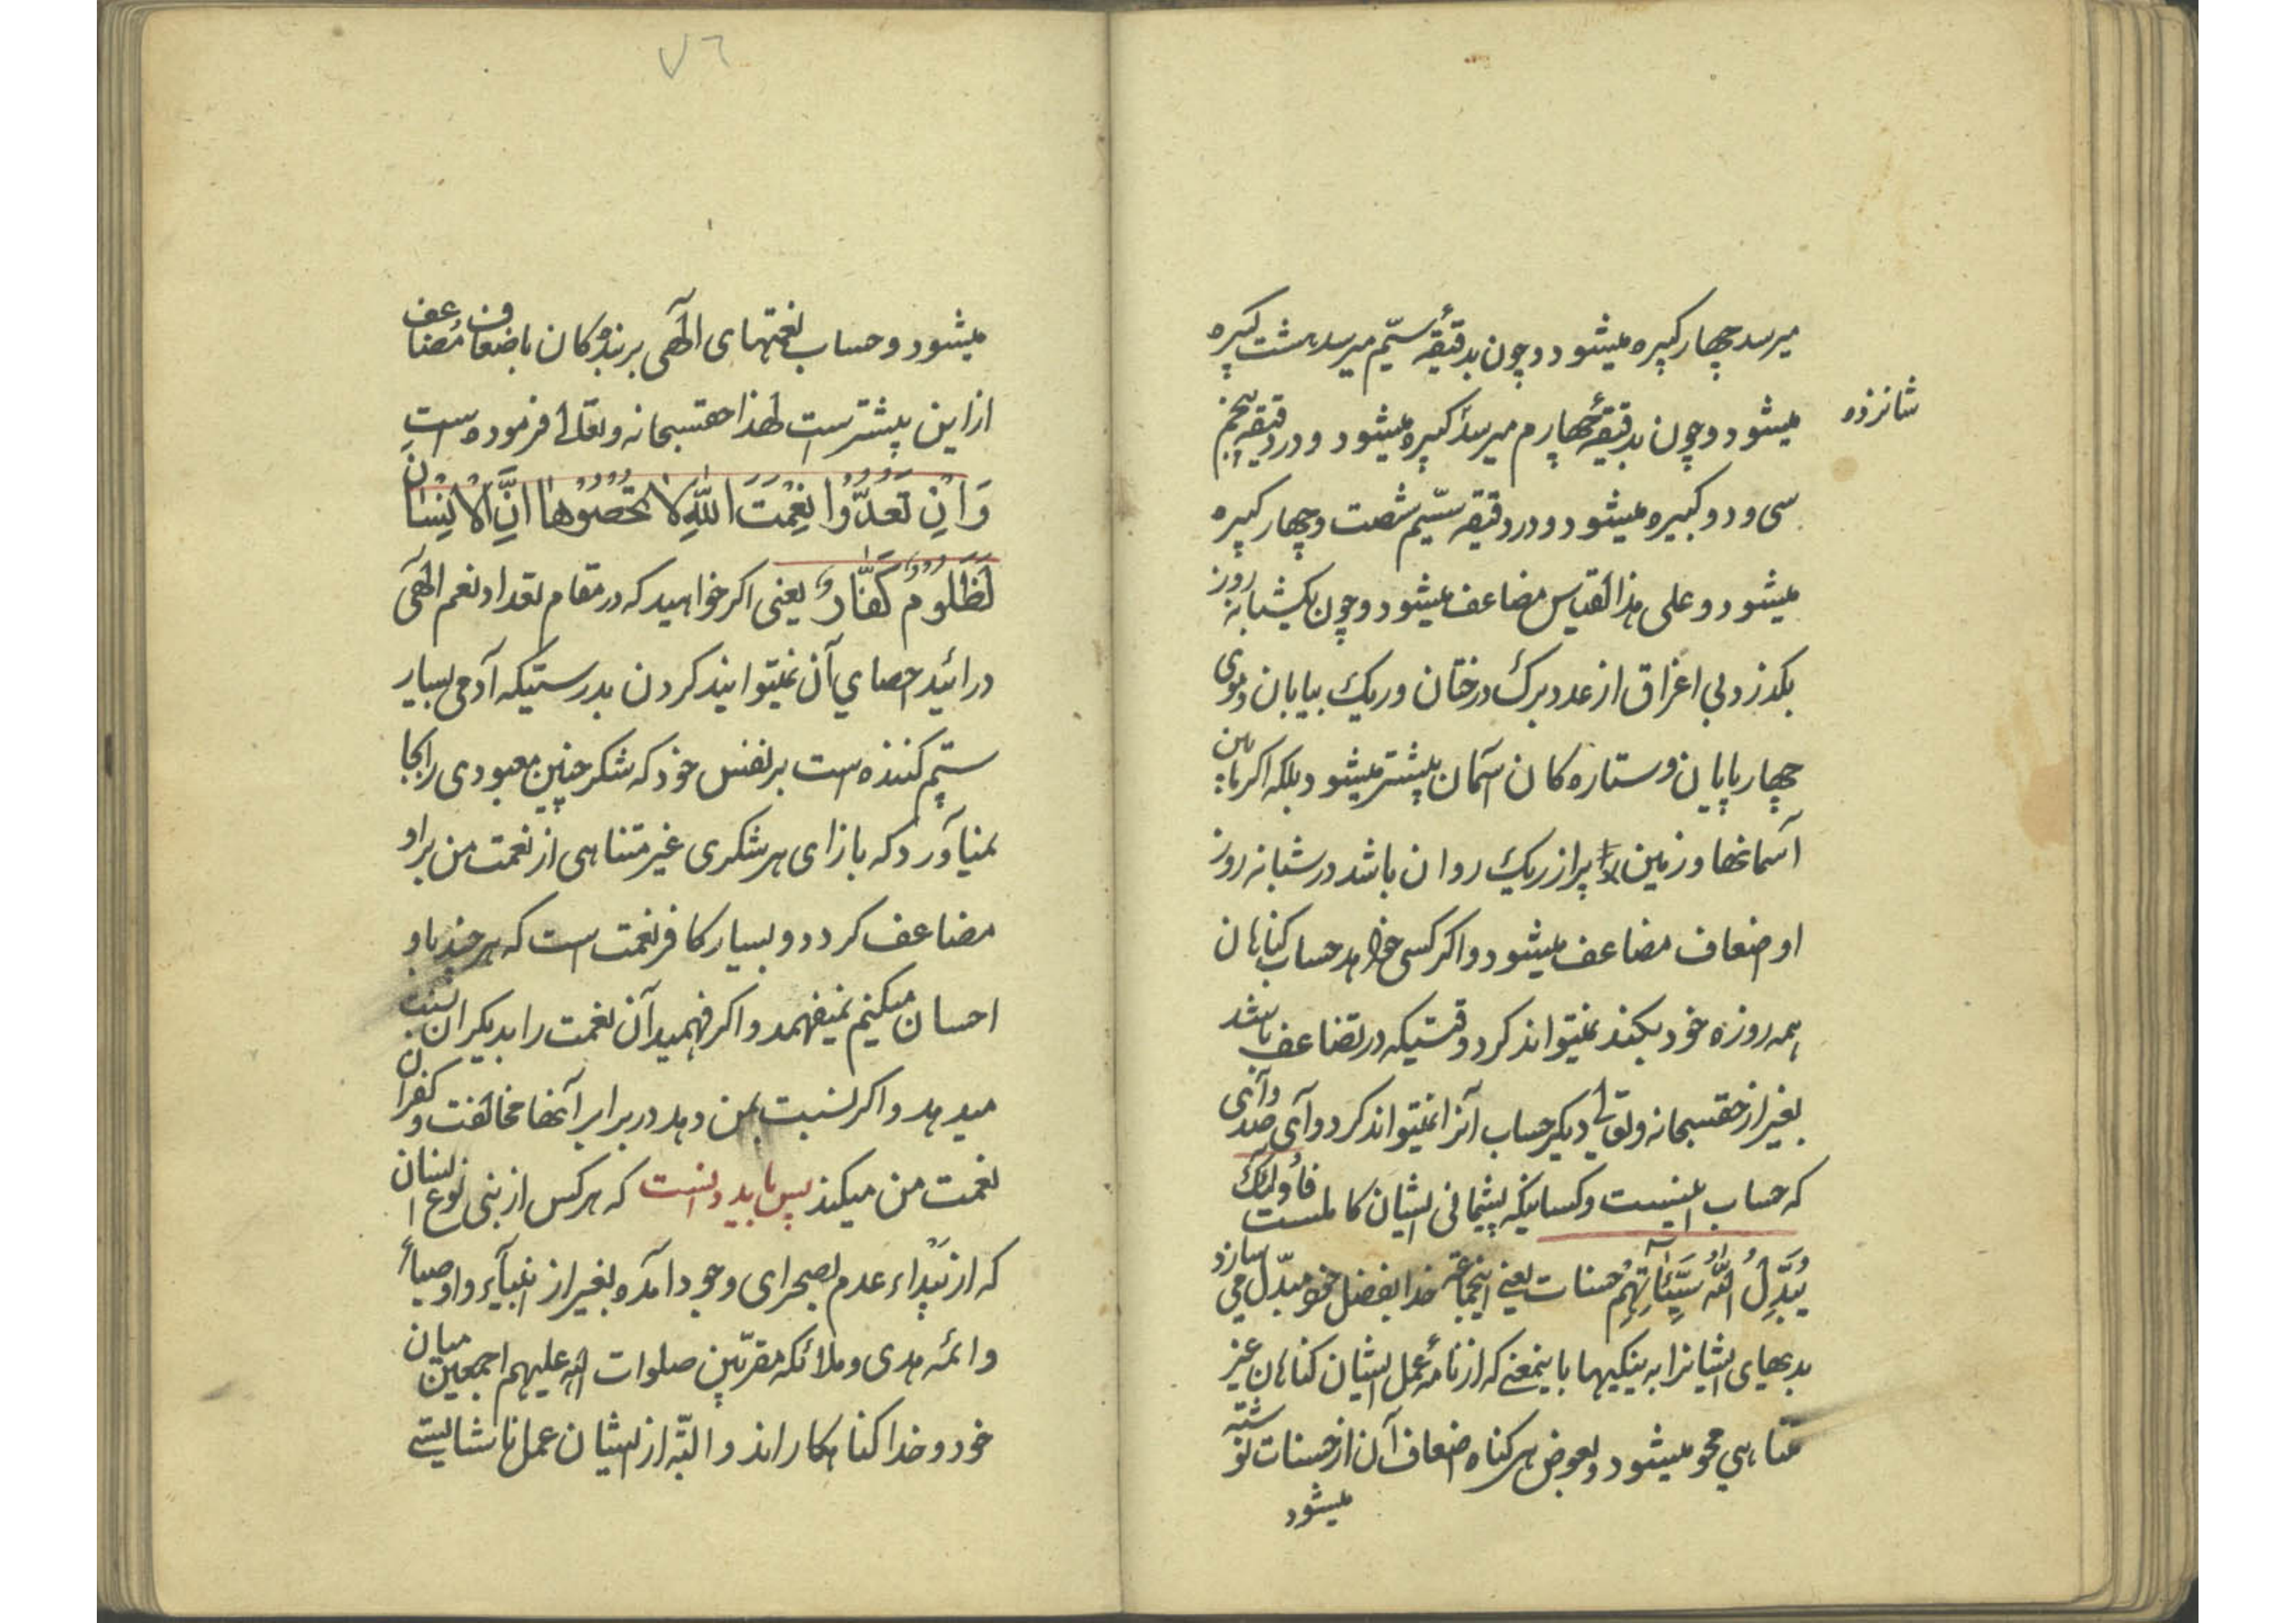 میرسد چهار کبیره میشود و چون بدقیقهٔ سیّم میرسد هشت کبیره
میشود و چون بدقیقهٔ چهارم میرسد کبیره میشود و در دقیقه پنجم
شانزده
سی و دو کبیره میشود و در دقیقه ششم شصت و چهار کبیره
میشود و علی هذا القیاس مضاعف میشود و چون یکشبانه روز
بکذرد بی اغراق از عدد برک درختان و ریک بیابان و موی
چهارپایان و ستاره کان آسمان بیشتر میشود بلکه اکر مابین
آسمانها و زمین را پر از ریک روان باشد در شبانه روز
او ضعاف مضاعف میشود و اکر کسی خواهد حساب کناهان
همه روزه خود بکند نمیتواند کرد وقتیکه در تضاعف باشد
بغیر از حقسبحانه و تعالی دیکر حساب آنرا نمیتواند کرد و آی
که حساب اینست و کسانیکه پشیمانی ایشان کاملست فاُولئِکَ
یُبَدِّلُ اللّهُ سَیِّئاتِهِم حسنات یعنی اینجماعة خدا بفضل خود مبدّل می سازد
بدیهای ایشانرا به نیکیها باینمعنی که از نامهٔ عمل ایشان کناهان غیر
متناهی محو میشود و بعوض هر کناه اضعاف آن از حسنات نوشته
میشود
۷۶
میشود و حساب نعمتهای الٓهی بر بنده کان باضعاف مُضاعف
از این بیشتر است لهذا حقسبحانه و تعالی فرموده است
وَ اِنْ تَعُدُّوا نِعْمَتَ اللّٰهِ لا تُحْصُوها اِنَّ الْاِنْسانَ
لَظَلُومٌ کَفّارٌ یعنی اکر خواهید که در مقام تعداد نعم الٓهی
درائید احصای آن نمیتوانید کردن بدرستیکه آدمی بسیار
ستم کننده است بر نفس خود که شکر چنین معبودی را بجا
نمیآورد که بازای هر شکری غیر متناهی از نعمت من بر او
مضاعف کردد و بسیار کافر نعمت است که هر چند باو
احسان میکنم نمیفهمد و اکر فهمید آن نعمت را بدیکران نسبت
میدهد و اکر نسبت بمن دهد در برابر آنها مخالفت و کفران
نعمت من میکند پس باید دانست که هر کس از بنی نوع انسان
که از بَیداء عدم بصحرای وجود آمده بغیر از انبیآء و اوصیاء
و ائمه هدی و ملائکه مقرّبین صلوات اللّه علیهم اجمعین میان
خود و خدا کناهکاراند و البتّه از ایشان عمل ناشایستی